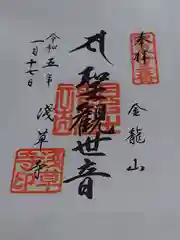 奉拝
金龍山
聖観世音
令和五年
一月十七日
浅草寺
浅草
寺印